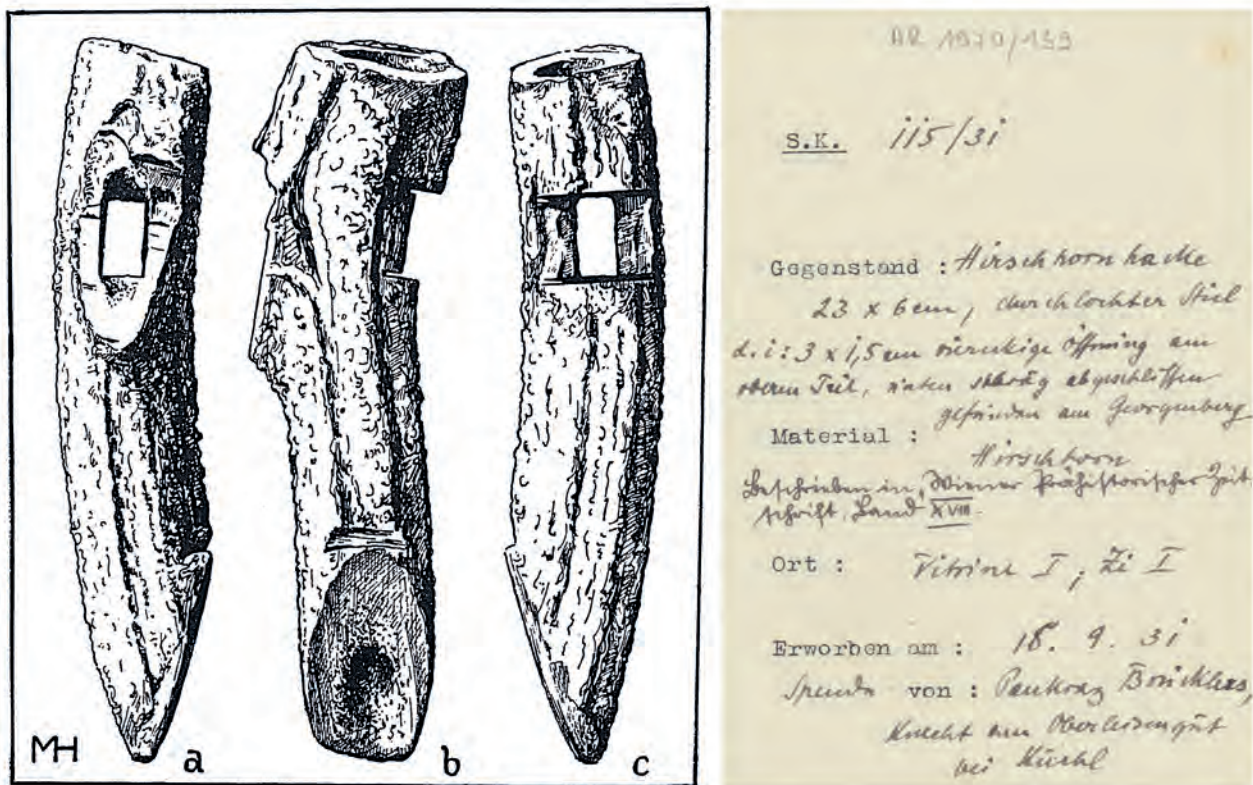 MH a b c
AR 1970/139
S.K. 115/31
Gegenstand : Hirschhornhacke
23 x 6 cm, durchlochter Stiel
d. i: 3 x 1,5 cm viereckige Öffnung am
oberen Teil, unten schräg abgeschliffen
gefunden am Georgenberg
Material :
Hirschhorn
Beschrieben in Wiener Prähistorischer Zeit-
schrift, Band XVIII.
Ort : Vitrine I, Zi I
Erworben am : 18. 9. 31
Spende von : Pankraz
Knecht am
bei Kuchl